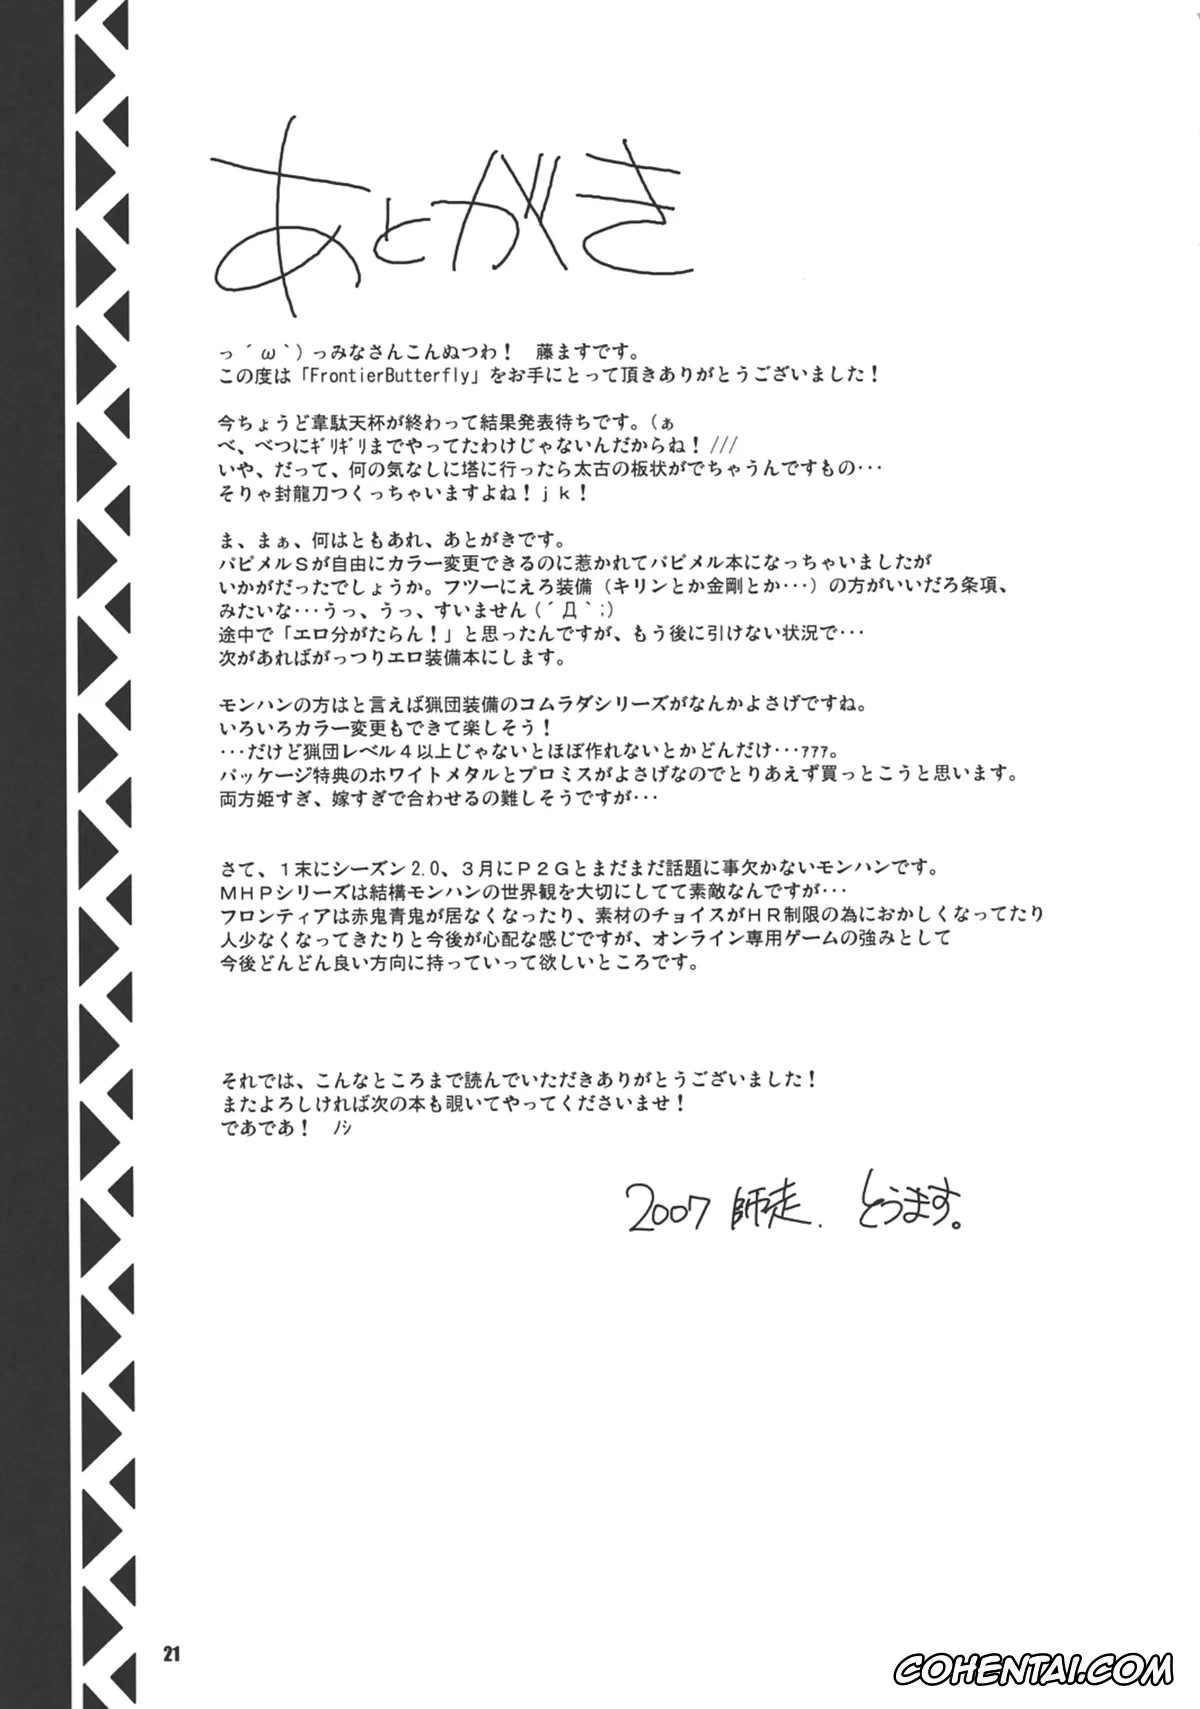 あとがき
っ´ω`)っみなさんこんぬつわ！　藤ますです。
この度は「FrontierButterfly」をお手にとって頂きありがとうございました！
今ちょうど韋駄天杯が終わって結果発表待ちです。(ぁ
べ、べつにｷﾞﾘｷﾞﾘまでやってたわけじゃないんだからね！///
いや、だって、何の気なしに塔に行ったら太古の板状がでちゃうんですもの･･･
そりゃ封龍刀つくっちゃいますよね！ｊｋ！
ま、まぁ、何はともあれ、あとがきです。
パピメルＳが自由にカラー変更できるのに惹かれてパピメル本になっちゃいましたが
いかがだったでしょうか。フツーにえろ装備（キリンとか金剛とか･･･）の方がいいだろ条項、
みたいな･･･うっ、うっ、すいません(´Д`;)
途中で「エロ分がたらん！」と思ったんですが、もう後に引けない状況で･･･
次があればがっつりエロ装備本にします。
モンハンの方はと言えば猟団装備のコムラダシリーズがなんかよさげですね。
いろいろカラー変更もできて楽しそう！
･･･だけど猟団レベル４以上じゃないとほぼ作れないとかどんだけ･･･ｧｧｧ。
パッケージ特典のホワイトメタルとプロミスがよさげなのでとりあえず買っとこうと思います。
両方姫すぎ、嫁すぎで合わせるの難しそうですが･･･
さて、１末にシーズン2.0、３月にＰ２Ｇとまだまだ話題に事欠かないモンハンです。
ＭＨＰシリーズは結構モンハンの世界観を大切にしてて素敵なんですが･･･
フロンティアは赤鬼青鬼が居なくなったり、素材のチョイスがＨＲ制限の為におかしくなってたり
人少なくなってきたりと今後が心配な感じですが、オンライン専用ゲームの強みとして
今後どんどん良い方向に持っていって欲しいところです。
それでは、こんなところまで読んでいただきありがとうございました！
またよろしければ次の本も覗いてやってくださいませ！
であであ！　ﾉｼ
2007 師走. とうます。
21
COHENTAI.COM